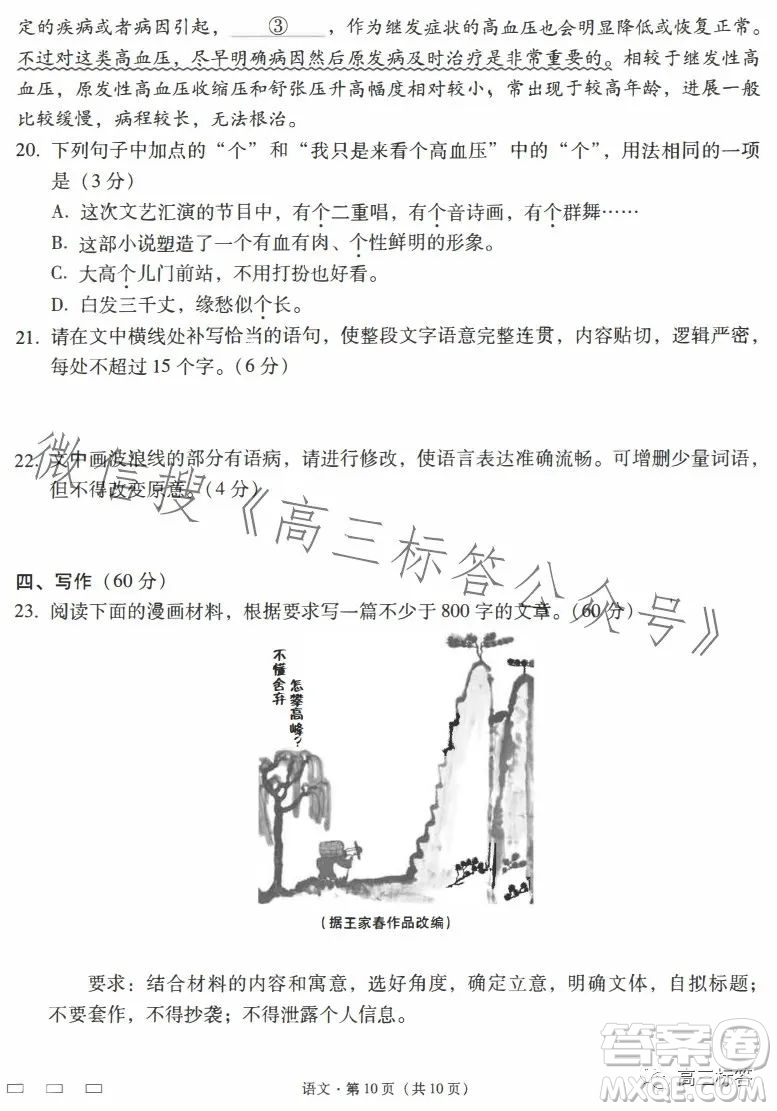 定的疾病或者病因引起，　③　，作为继发症状的高血压也会明显降低或恢复正常。
不过对这类高血压，尽早明确病因然后原发病及时治疗是非常重要的。相较于继发性高
血压，原发性高血压收缩压和舒张压升高幅度相对较小，常出现于较高年龄，进展一般
比较缓慢，病程较长，无法根治。
20. 下列句子中加点的“个”和“我只是来看个高血压”中的“个”，用法相同的一项
是（3分）
A. 这次文艺汇演的节目中，有个二重唱，有个音诗画，有个群舞……
B. 这部小说塑造了一个有血有肉、个性鲜明的形象。
C. 大高个儿门前站，不用打扮也好看。
D. 白发三千丈，缘愁似个长。
21. 请在文中横线处补写恰当的语句，使整段文字语意完整连贯，内容贴切，逻辑严密，
每处不超过15个字。（6分）
22. 文中画波浪线的部分有语病，请进行修改，使语言表达准确流畅。可增删少量词语，
但不得改变原意。（4分）
微信搜《高三标答公众号》
四、写作（60分）
23. 阅读下面的漫画材料，根据要求写一篇不少于800字的文章。（60分）
不懂舍弃
怎攀高峰？
（据王家春作品改编）
要求：结合材料的内容和寓意，选好角度，确定立意，明确文体，自拟标题；
不要套作，不得抄袭；不得泄露个人信息。
答案卷
高三标答
语文·第10页（共10页）